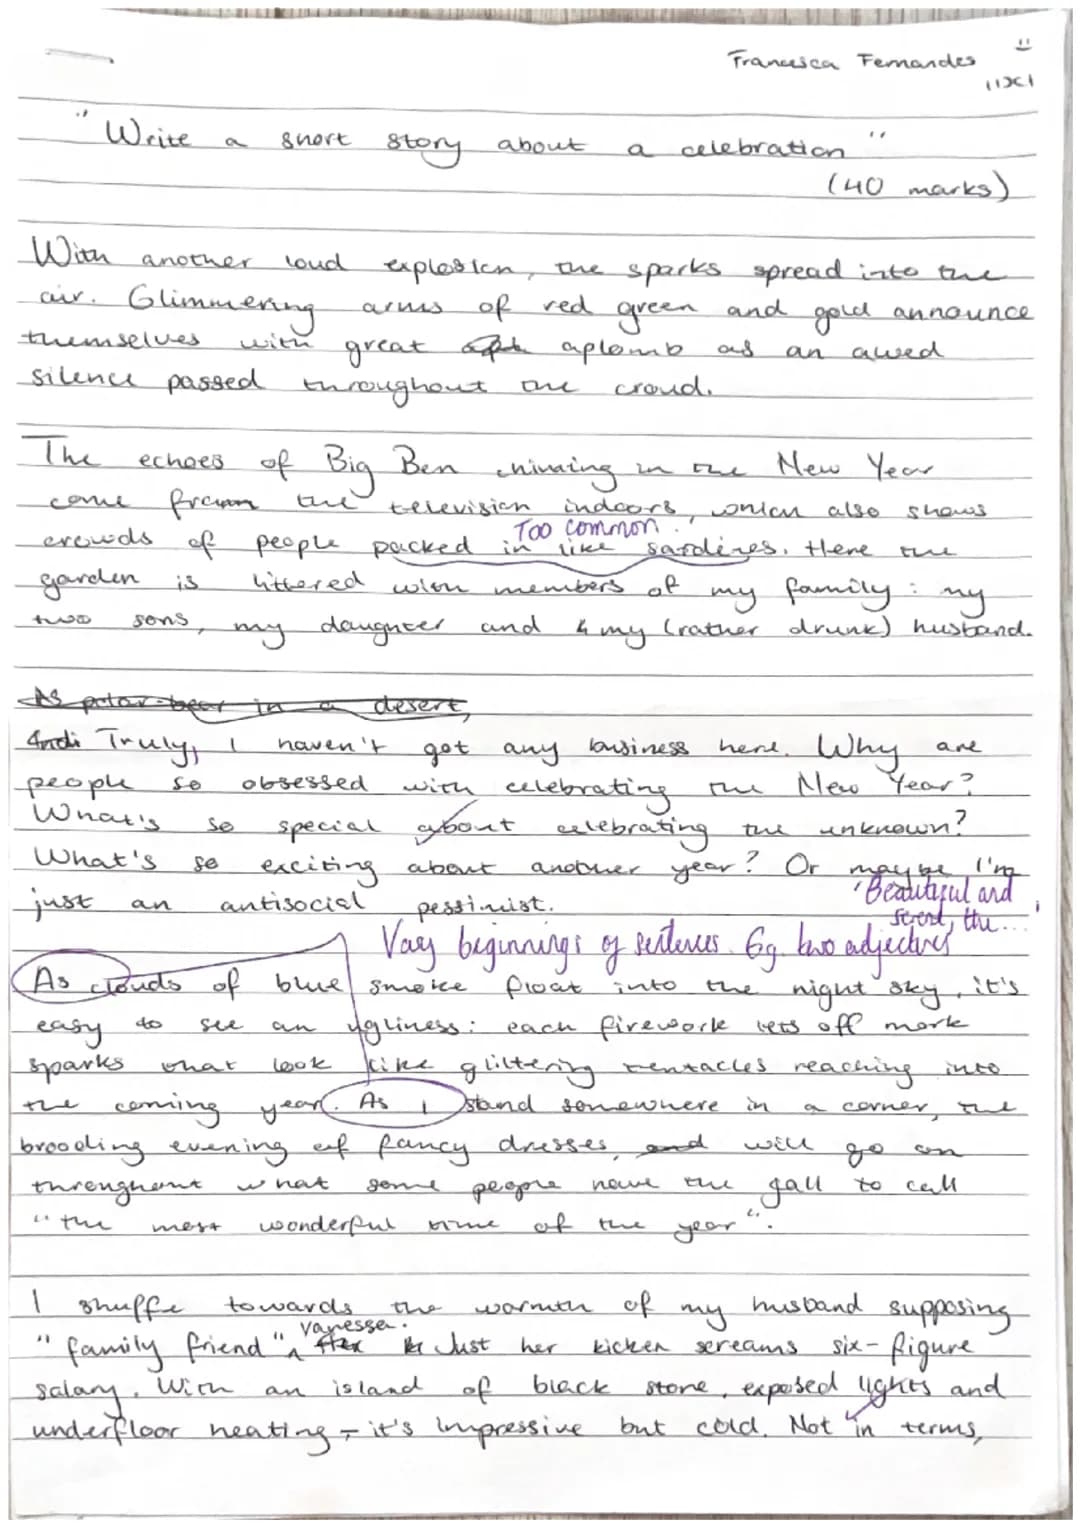 Francesca Fernandes
11X1
"Write a short story about a celebration"
(40 marks)
With another loud explosion, the sparks spread into the
air. Glimmering arms of red green and gold announce
themselves with great aplomb as an awed
silence passed throughout the crowd.
The echoes of Big Ben chiming in the New Year
come from the television indoors, which also shows
Too common.
crowds of people packed in like sardines. Here the
garden is littered with members of my family: my
two sons, my daughter and my (rather drunk) husband.
As polar bear in a desert,
Truly, I haven't got any business here. Why are
people so obsessed with celebrating the New Year?
What's so special about celebrating the unknown?
What's so exciting about another year? Or maybe I'm
just an antisocial pessimist.
'Beautiful and
the...
Vary beginnings of sentences. Eg. two adjectives
As clouds of blue smoke float into the night sky, it's
easy to see an ugliness: each firework lets off
sparks that look like glittering tentacles reaching into
the coming year. As I stand somewhere in a corner, the
brooding evening of fancy dresses, and will go on
throughout what some people have the gall to call
"the most wonderful time of the year".
I shuffe towards the warmth of my husband supposing
Vanessa.
"family friend" Just her kitchen screams six-figure
salary. With an island of black stone, exposed lights and
underfloor heating - it's impressive but cold. Not in terms,